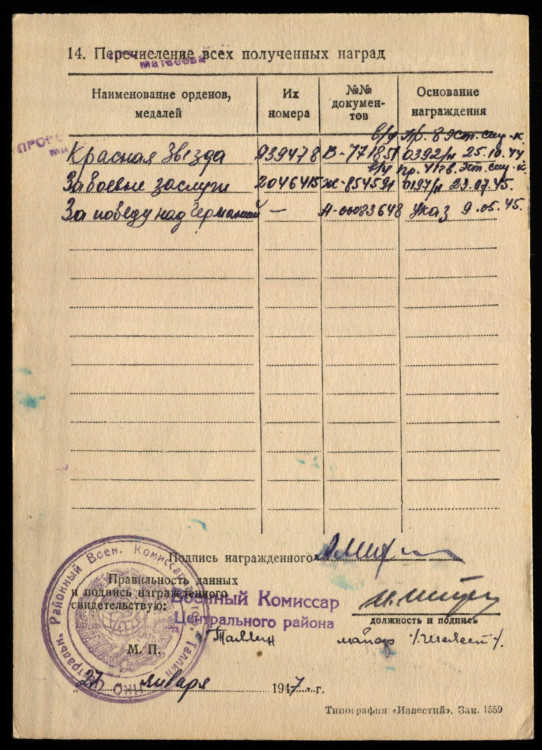 14. Перечисление всех полученных наград
Матвеева
Наименование орденов, медалей
Их номера
№№ документов
Основание награждения
Красная Звезда 939478 В-771851 0392/н 25.10.44
За боевые заслуги 2046415 Ж-854591 0197/н 23.07.45.
За победу над Германией — А-00083648 Указ 9.05.45.
Подпись награжденного
Правильность данных
и подпись награжденного
свидетельствую:
Военный Комиссар
Центрального района
г. Таллин
должность и подпись
майор
М. П.
27 января 1947 г.
Районный Воен. Комиссар
НКО
Типография «Известий». Зак. 1559